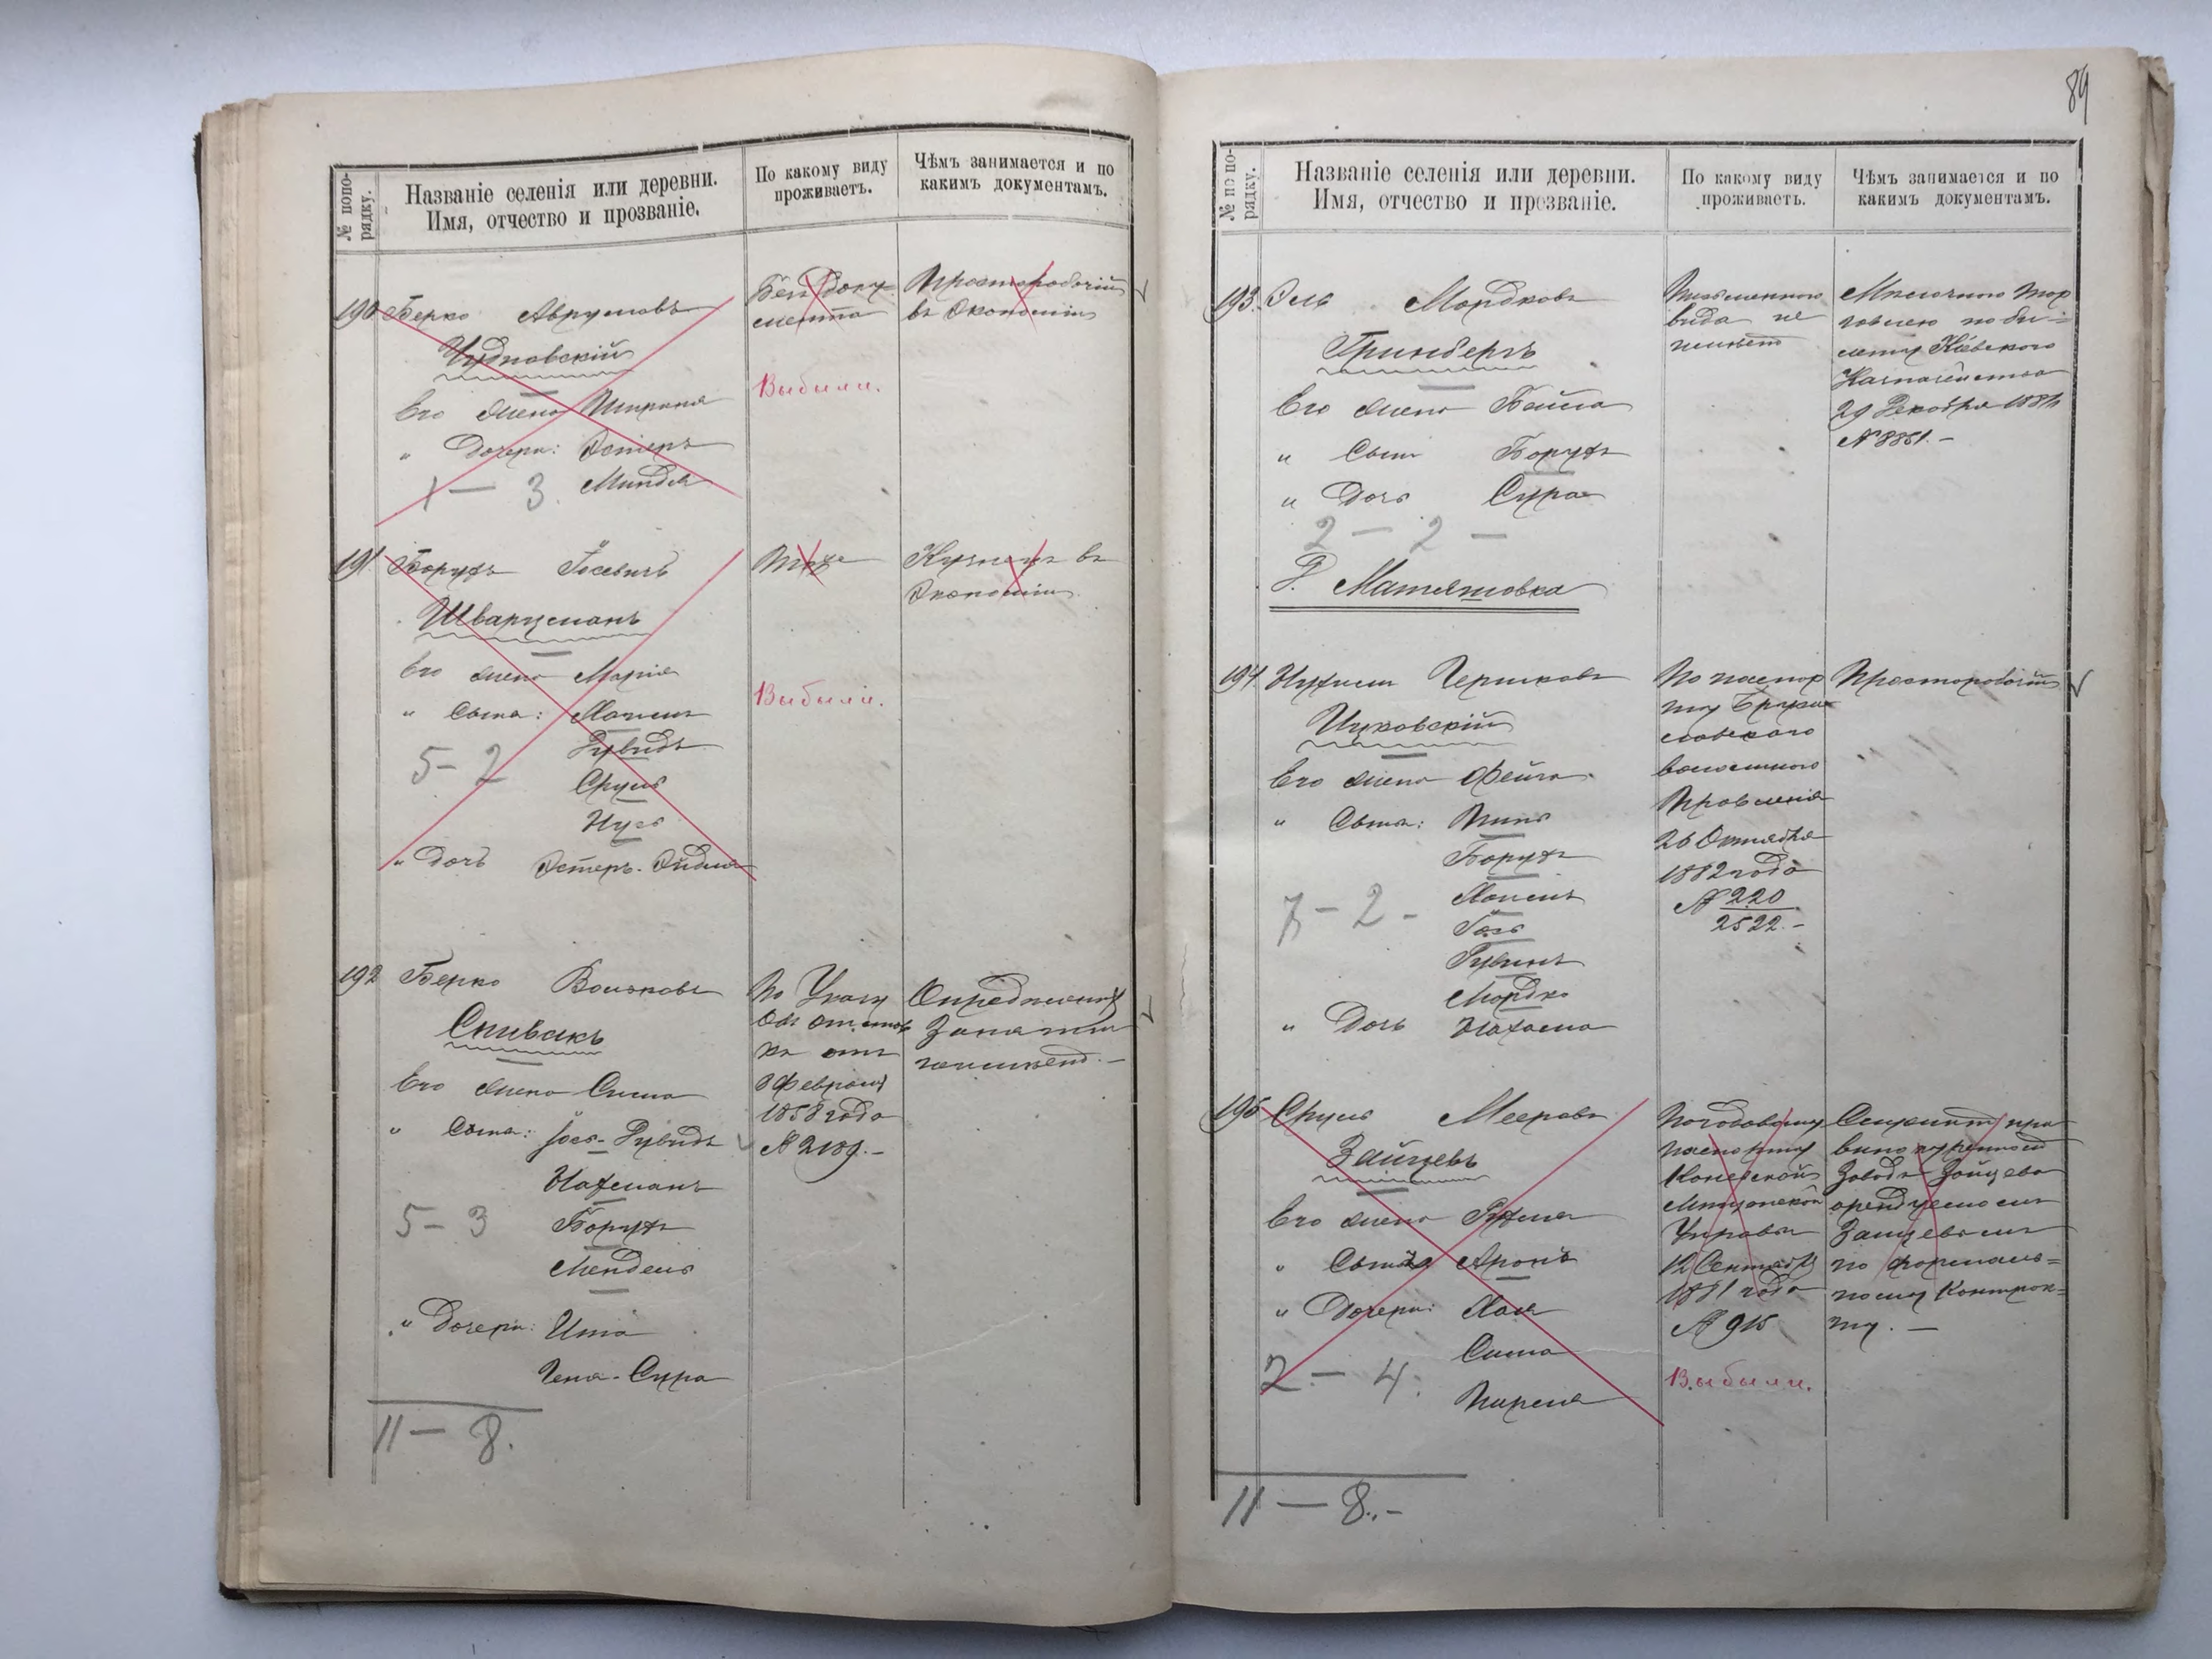 № попо-
рядку.
Названіе селенія или деревни.
Имя, отчество и прозваніе.
По какому виду
проживаетъ.
Чѣмъ занимается и по
какимъ документамъ.
190 Берко Аврумовъ
Чудновскій
Его жена
" Дочери: Эстеръ
Миндля
1 — 3.
Без доку-
мента
Выбыли.
Чернорабочій
въ Экономіи
191 Борухъ Іосевичъ
Шварцманъ
Его жена Марія
" Сына: Хаимъ
Дувидъ
Сруль
Нусь
5 - 2
" Дочь Эстеръ-Эйдля
Тоже
Выбыли.
Кузнецъ въ
Экономіи
192 Берко Волковъ
Спивакъ
Его жена Сима
" Сына: Іось-Дувидъ
Нахманъ
Борухъ
Мендель
5 - 3
" Дочери: Ита
Геня-Сура
11 — 8.
По Указу
объ отстав
къ отъ
8 Февраля
1858 года
№ 2189.-
Опредѣленныхъ
Занятій
неимѣетъ.—
89
№ по по-
рядку.
Названіе селенія или деревни.
Имя, отчество и прозваніе.
По какому виду
проживаетъ.
Чѣмъ занимается и по
какимъ документамъ.
193. Эль Мордковъ
Гринбергъ
Его жена Бейла
" Сынъ Борухъ
" Дочь Сура
2 — 2 —
Письменного
вида не
имѣетъ
Мелочною тор
говлею по би-
лету Кіевского
Казначейства
29 Декабря
№ 8851.-
Д. Матяшовка
194 Нухимъ Берковъ
Цуковскій
Его жена Фейга
" Сына: Пинь
Борухъ
Хаимъ
Іось
Рувинъ
Мордко
7 - 2 -
" Дочь Нахама
По паспор
ту
волостного
Правленія
26 Октября
1882 года
№ 220
2522.-
Чернорабочій
195 Сруль Мееровъ
Зайцевъ
Его жена
" Сынъ Аронъ
" Дочери: Хая
Сима
2 — 4.
По годовому
паспорту
Каневской
Мѣщанской
Управы
12 Сентября
1881 года
№ 915
Выбыли.
Служитъ при
винокуренномъ
Заводѣ Зайцева
арендуемомъ
Зайцевымъ
по формаль-
ному Контрак-
ту. —
11 — 8.-